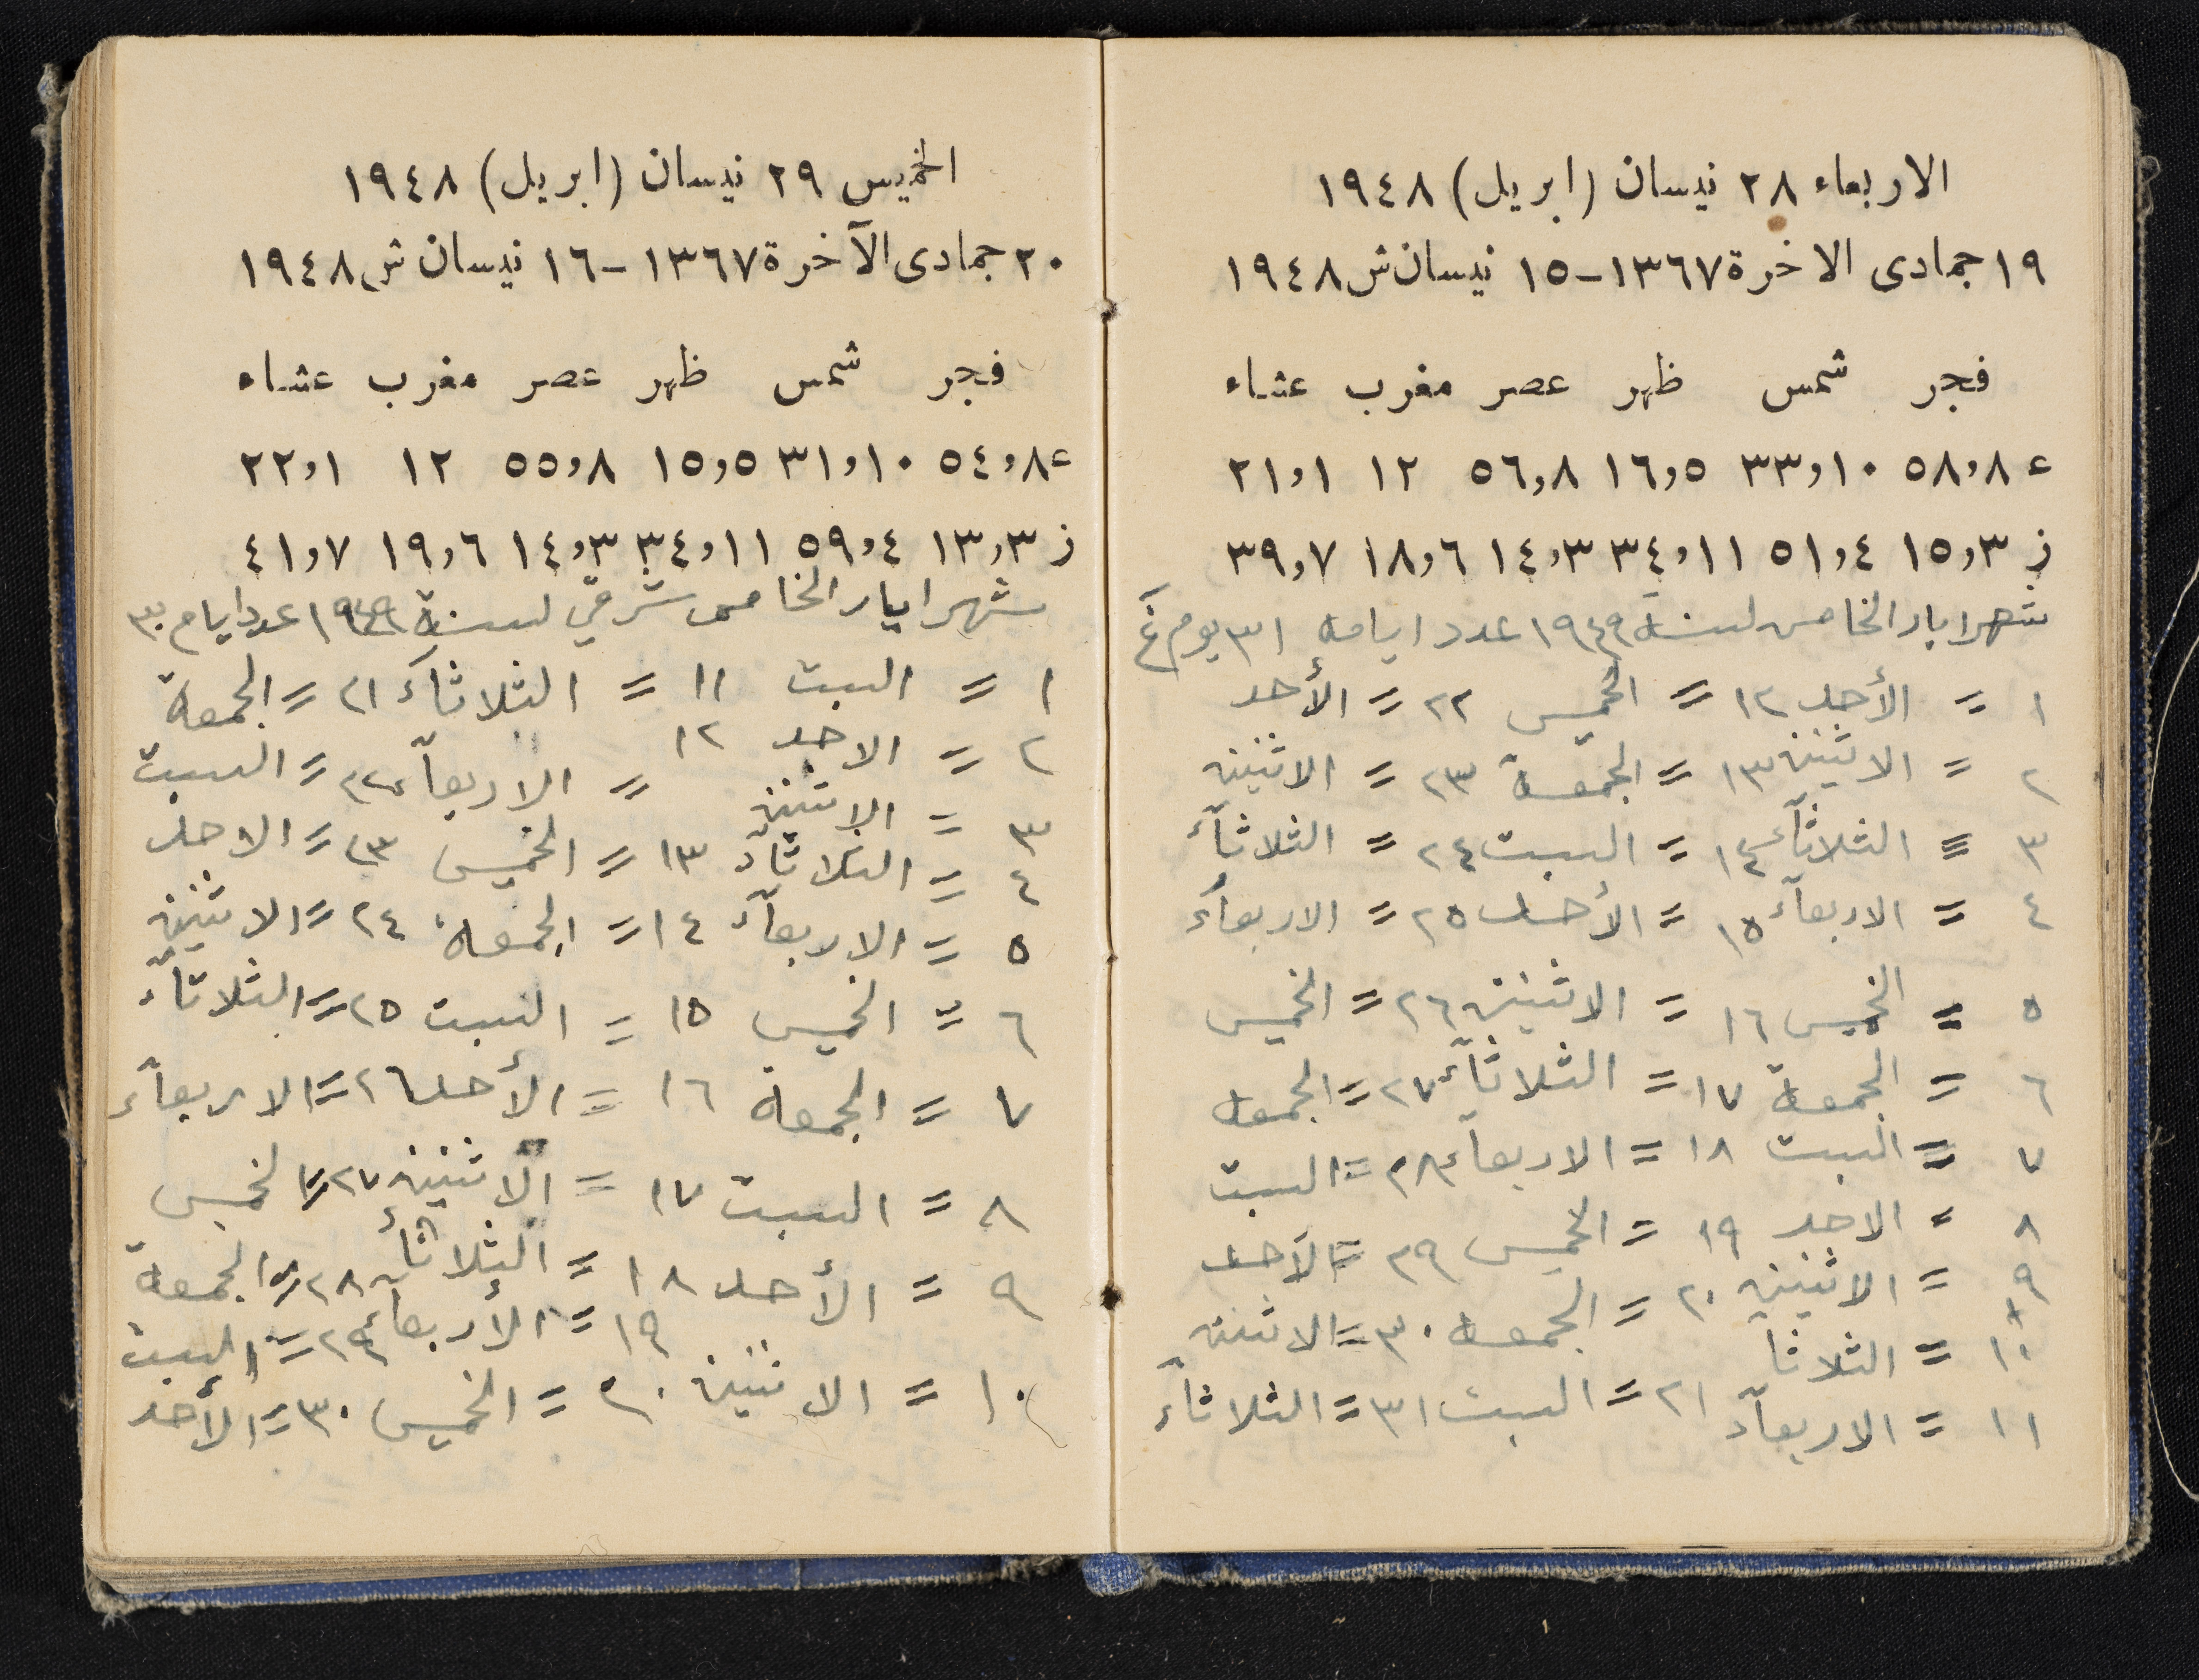 الاربعاء ٢٨ نيسان (ابريل) ١٩٤٨
١٩ جمادى الاخرة ١٣٦٧ - ١٥ نيسان ش ١٩٤٨
فجر شمس ظهر عصر مغرب عشاء
ع ٨,٥٨ ١٠,٣٣ ٥,١٦ ٨,٥٦ ١٢ ١,٢١
ز ٣,١٥ ٤,٥١ ١١,٣٤ ٣,١٤ ٦,١٨ ٧,٣٩
شهر ايار الخامس لسنة ١٩٤٩ عدد ايامه ٣١ يوم غ
١ = الأحد ١٢ = الخميس ٢٢ = الأحد
٢ = الاثنين ١٣ = الجمعة ٢٣ = الاثنين
٣ = الثلاثآء ١٤ = السبت ٢٤ = الثلاثآء
٤ = الاربعآء ١٥ = الأحد ٢٥ = الاربعآء
٥ = الخميس ١٦ = الاثنين ٢٦ = الخميس
٦ = الجمعة ١٧ = الثلاثآء ٢٧ = الجمعه
٧ = السبت ١٨ = الاربعآء ٢٨ = السبت
٨ = الاحد ١٩ = الخميس ٢٩ = الأحد
٩ = الاثنين ٢٠ = الجمعه ٣٠ = الاثنين
١٠ = الثلاثآ
١١ = الاربعآء ٢١ = السبت ٣١ = الثلاثآء
الخميس ٢٩ نيسان (ابريل) ١٩٤٨
٢٠ جمادى الآخرة ١٣٦٧ - ١٦ نيسان ش ١٩٤٨
فجر شمس ظهر عصر مغرب عشاء
ع ٨,٥٤ ١٠,٣١ ٥,١٥ ٨,٥٥ ١٢ ١,٢٢
ز ٣,١٣ ٤,٥٩ ١١,٣٤ ٣,١٤ ٦,١٩ ٧,٤١
شهر ايار الخامس شرقي لسنة ١٩٤٩ عدد ايام ٣٠
١ = السبت ١١ = الثلاثآء ٢١ = الجمعة
٢ = الاحد ١٢ = الاربعآء ٢٢ = السبت
٣ = الاثنين
٤ = الثلاثآء ١٣ = الخميس ٢٣ = الاحد
٥ = الاربعآء ١٤ = الجمعة ٢٤ = الاثنين
٦ = الخميس ١٥ = السبت ٢٥ = الثلاثآء
٧ = الجمعة ١٦ = الأحد ٢٦ = الاربعآء
٨ = السبت ١٧ = الاثنين ٢٧ = الخميس
٩ = الأحد ١٨ = الثلاثآء ٢٨ = الجمعة
١٩ = الأربعآء ٢٩ = السبت
١٠ = الاثنين ٢٠ = الخميس ٣٠ = الأحد